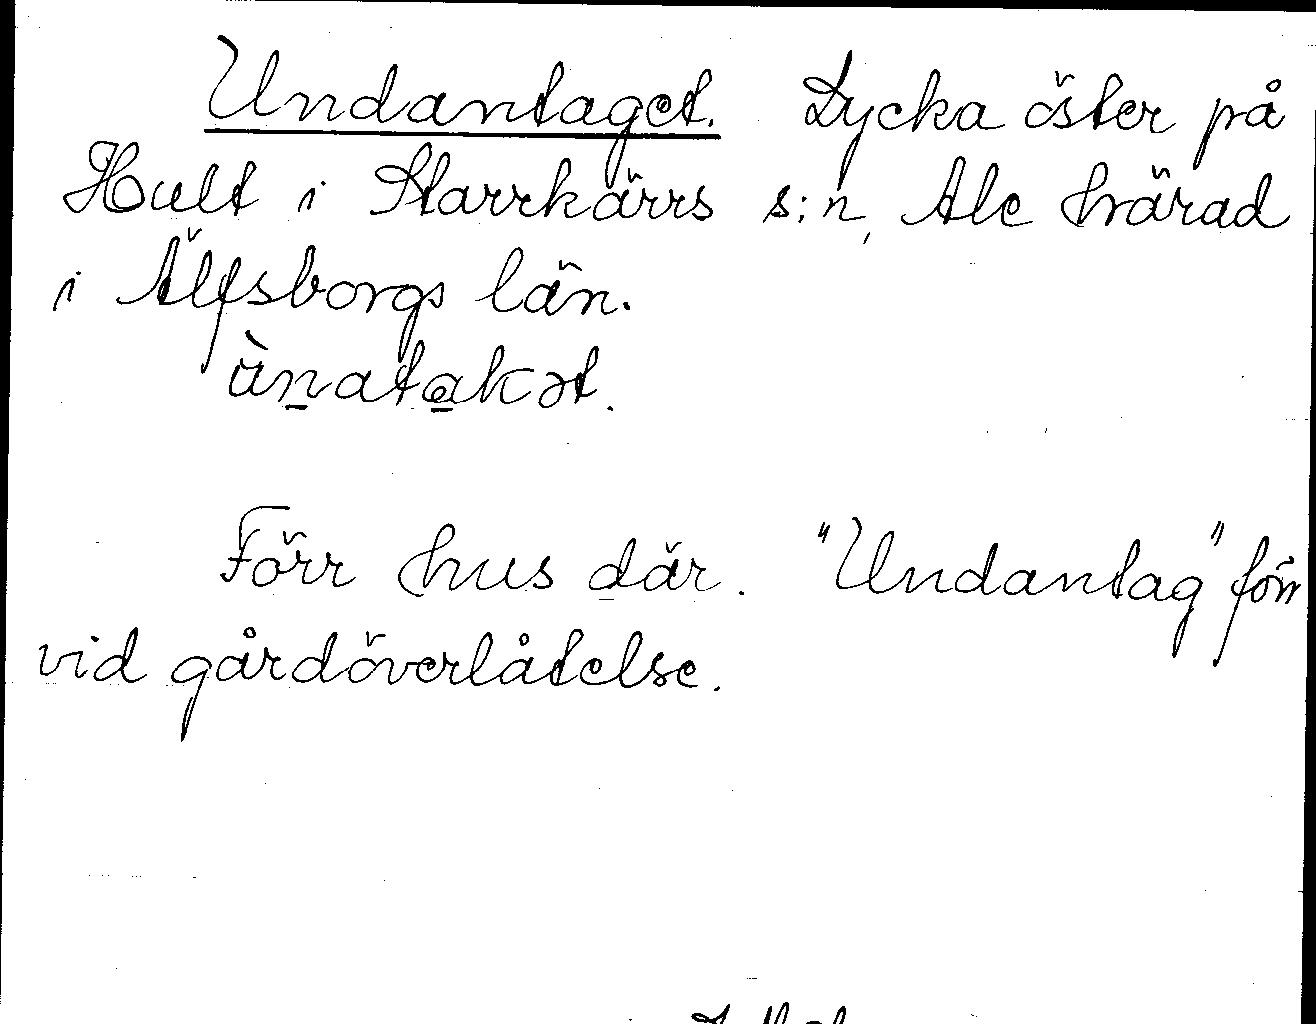 Undantaget. Lycka öster på
Hult i Starrkärrs s:n, Ale härad
i Älfsborgs län.
ùn̲ata̲kət.
Förr hus där. "Undantag" förr
vid gårdöverlåtelse.